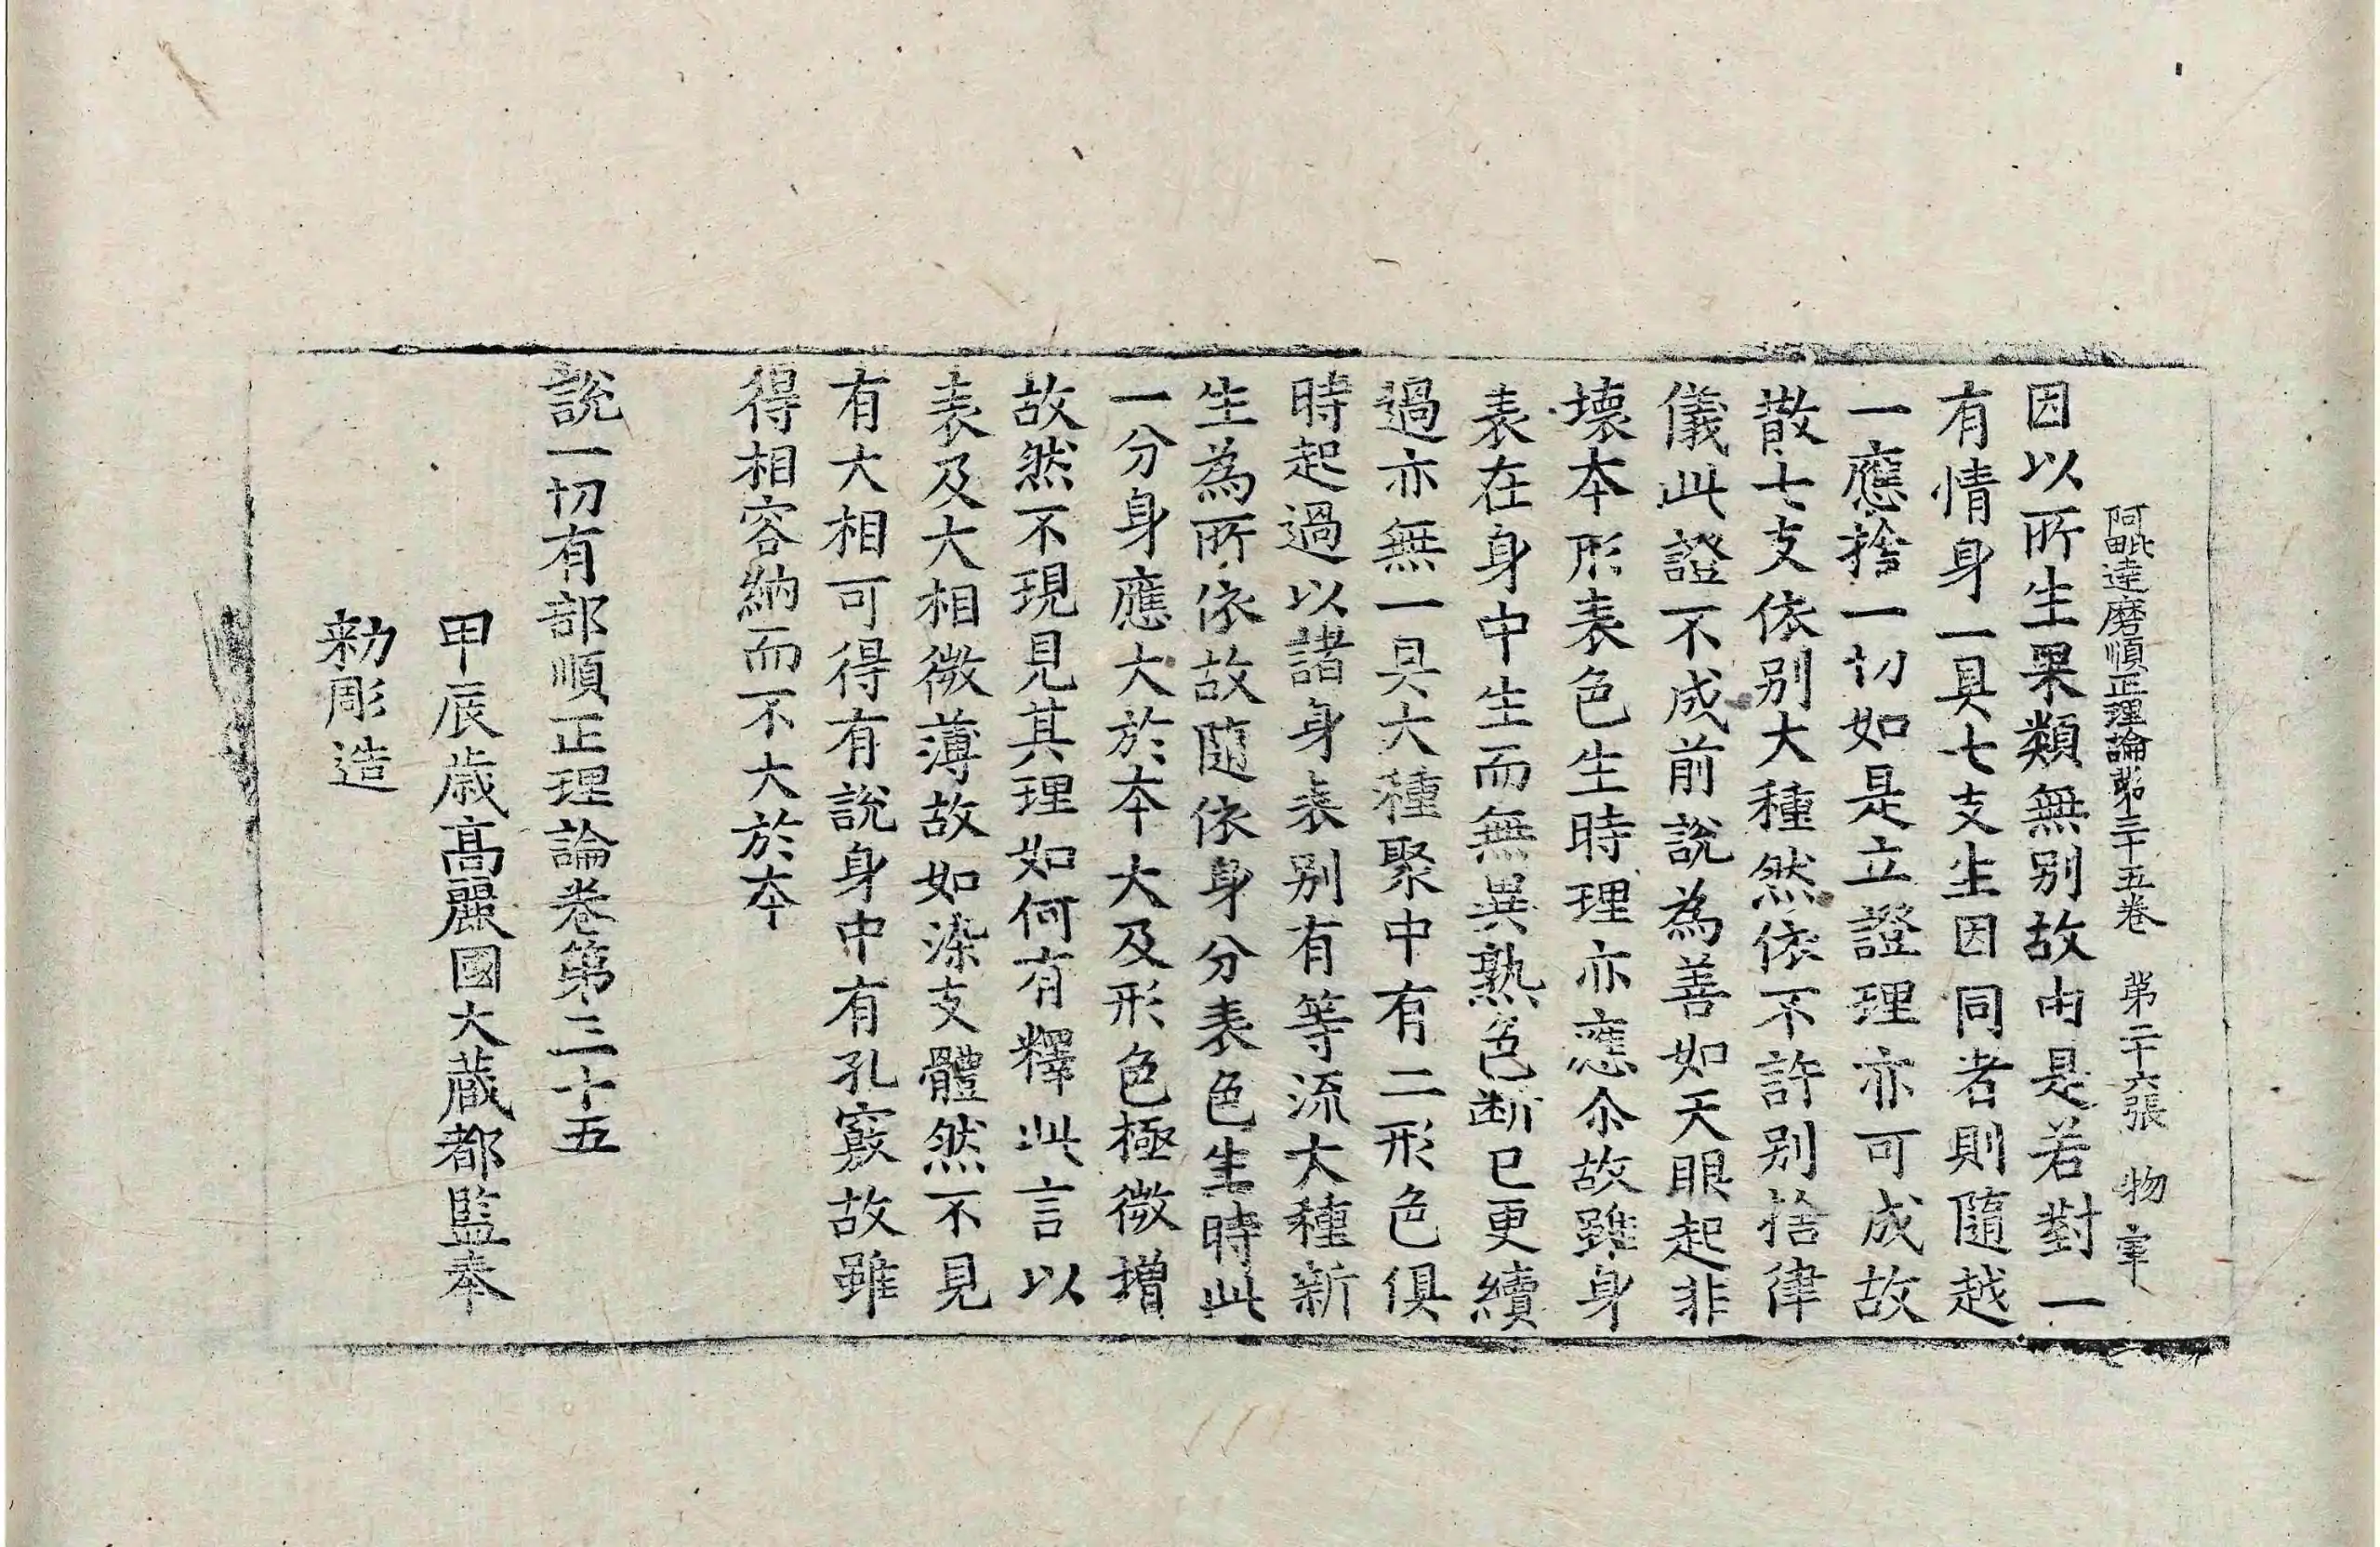 阿毗達磨順正理論第三十五卷 第二十六張 物
因以所生果類無别故由是若對一
有情身一具七支生因同者則隨越
一應捨一切如是立證理亦可成故
散七支依别大種然依不許别捨律
儀此證不成前說為善如天眼起非
壞本形表色生時理亦應尒故雖身
表在身中生而無異熟色断已更續
過亦無一具大種聚中有二形色俱
時起過以諸身表别有等流大種新
生為所依故隨依身分表色生時此
一分身應大於本大及形色極微增
故然不現見其理如何有釋此言以
表及大相微薄故如染支體然不見
有大相可得有說身中有孔竅故雖
得相容納而不大於本
說一切有部順正理論卷第三十五
甲辰歲高麗國大藏都監奉
勑彫造